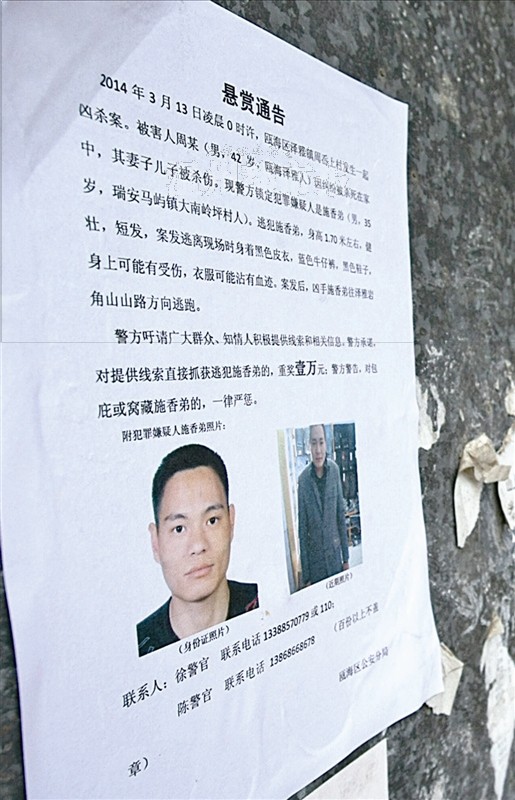 悬赏通告
2014 年 3 月 13 日凌晨 0 时许，瓯海区泽雅镇周岙上村发生一起
凶杀案。被害人周某（男，42 岁，瓯海泽雅人）因纠纷被杀死在家
中，其妻子儿子被杀伤。现警方锁定犯罪嫌疑人是施香弟（男，35
岁，瑞安马屿镇大南岭坪村人）。逃犯施香弟，身高 1.70 米左右，健
壮，短发，案发逃离现场时身着黑色皮衣，蓝色牛仔裤，黑色鞋子，
身上可能有受伤，衣服可能沾有血迹。案发后，凶手施香弟往泽雅岩
角山山路方向逃跑。
警方吁请广大群众、知情人积极提供线索和相关信息。警方承诺，
对提供线索直接抓获逃犯施香弟的，重奖壹万元；警方警告，对包
庇或窝藏施香弟的，一律严惩。
附犯罪嫌疑人施香弟照片：
（身份证照片）
（近期照片）
联系人：徐警官 联系电话 13388570779 或 110；
陈警官 联系电话 13868668678 （百份以上不盖
瓯海区公安分局
章）